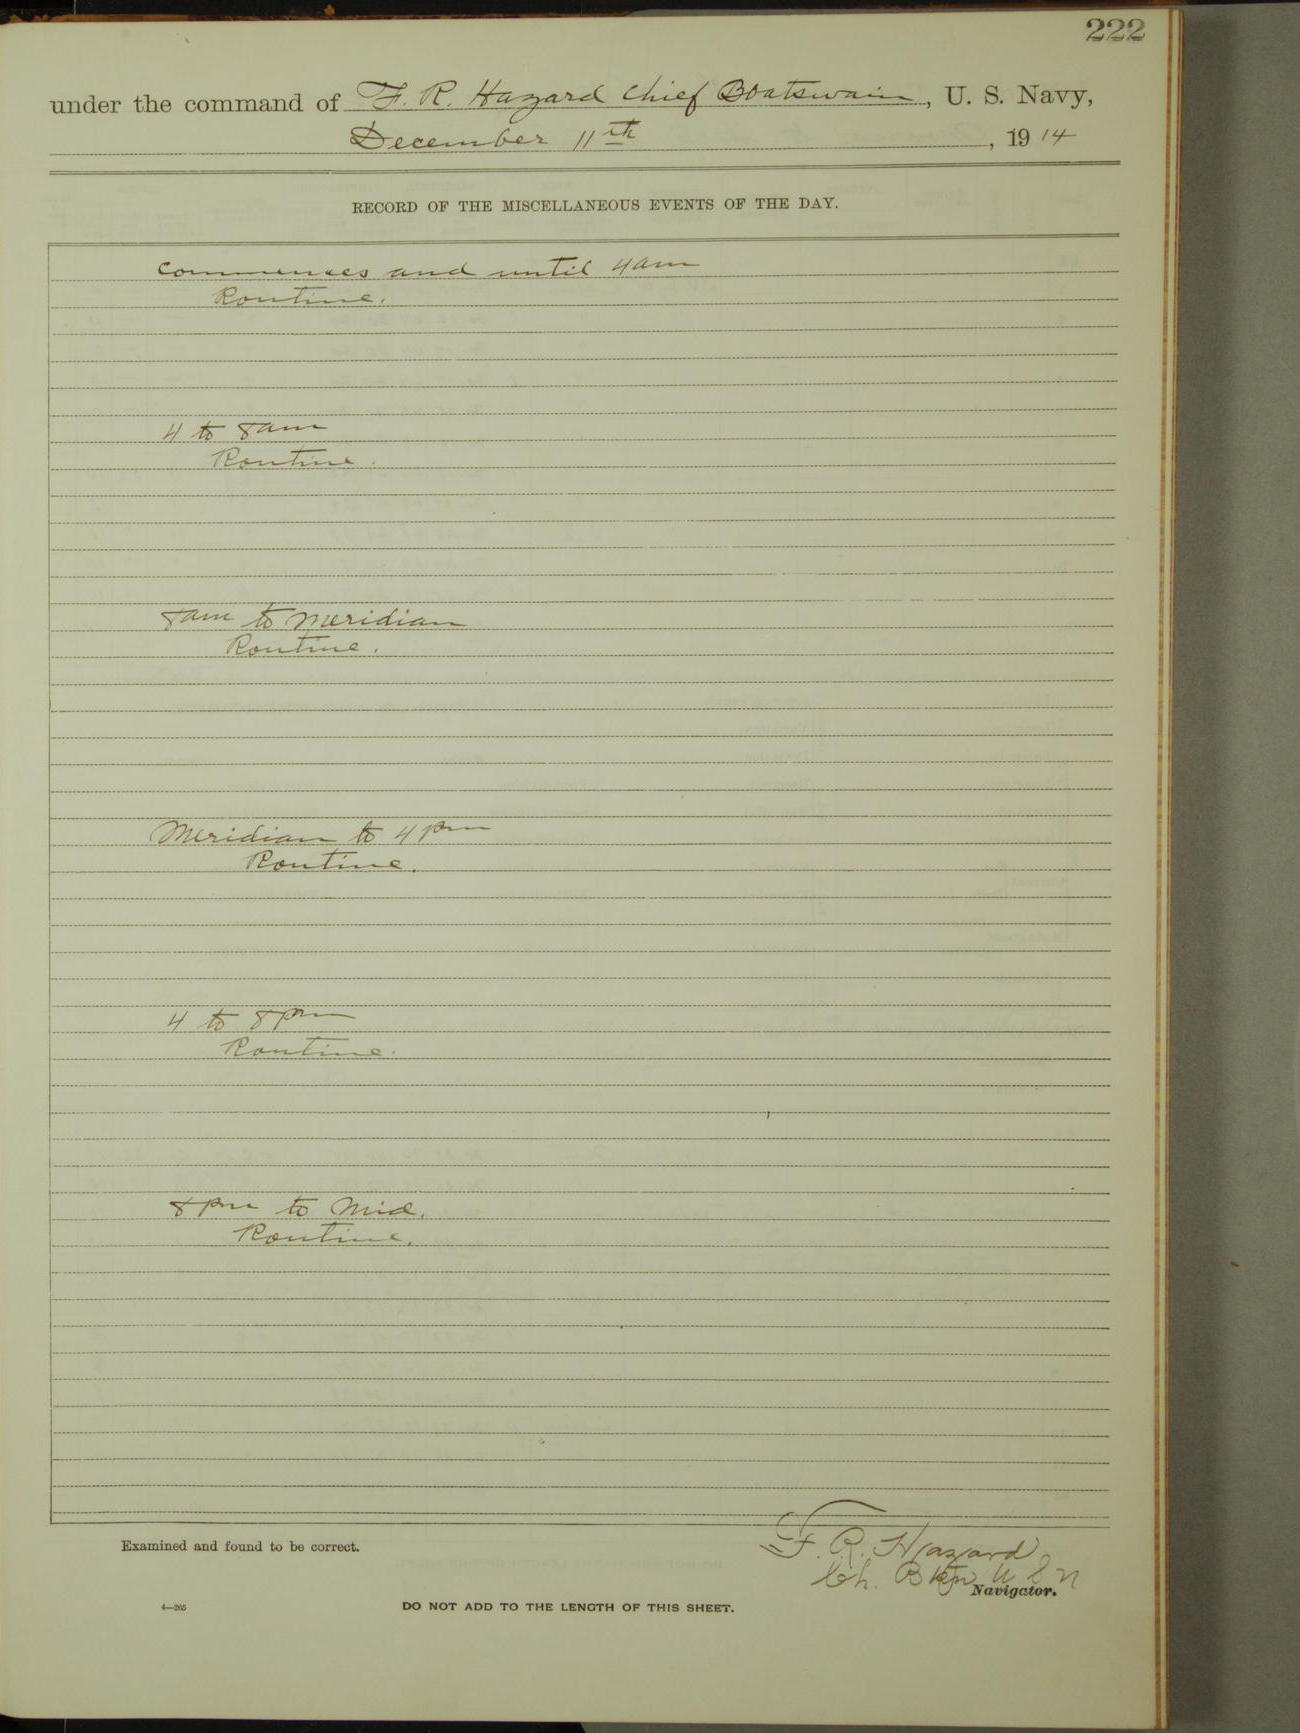 222
under the command of F. R. Hazard Chief Boatswain, U. S. Navy,
December 11th, 1914
RECORD OF THE MISCELLANEOUS EVENTS OF THE DAY.
Commences and until 4am
Routine.
4 to 8am
Routine.
8am to meridian
Routine.
Meridian to 4 pm
Routine.
4 to 8pm
Routine.
8 pm to Mid.
Routine.
Examined and found to be correct.
F. R. Hazard
Ch. Btsn U S N
Navigator.
4—265
DO NOT ADD TO THE LENGTH OF THIS SHEET.